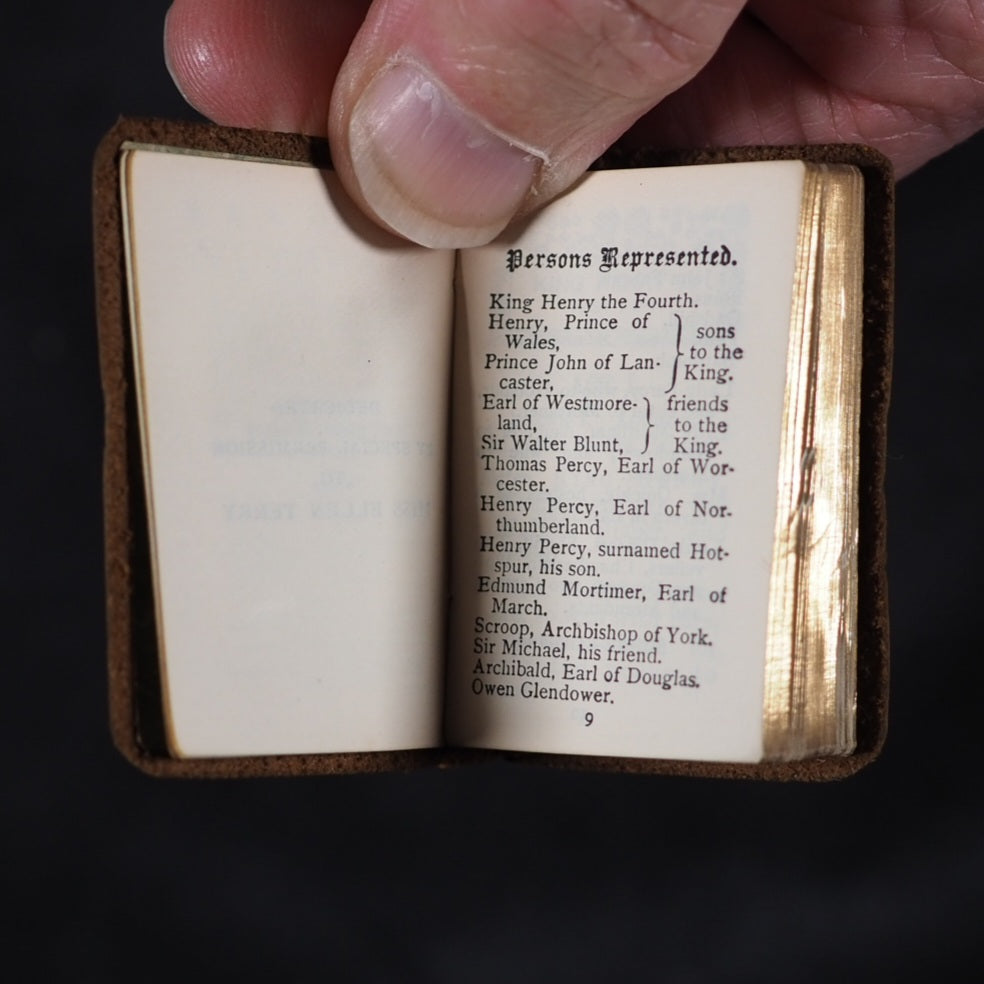 DEDICATED
BY SPECIAL PERMISSION
TO
MISS ELLEN TERRY
Persons Represented.
King Henry the Fourth.
Henry, Prince of
Wales,
sons
to the
King.
Prince John of Lan-
caster,
Earl of Westmore-
land,
friends
to the
King.
Sir Walter Blunt,
Thomas Percy, Earl of Wor-
cester.
Henry Percy, Earl of Nor-
thumberland.
Henry Percy, surnamed Hot-
spur, his son.
Edmund Mortimer, Earl of
March.
Scroop, Archbishop of York.
Sir Michael, his friend.
Archibald, Earl of Douglas.
Owen Glendower.
9